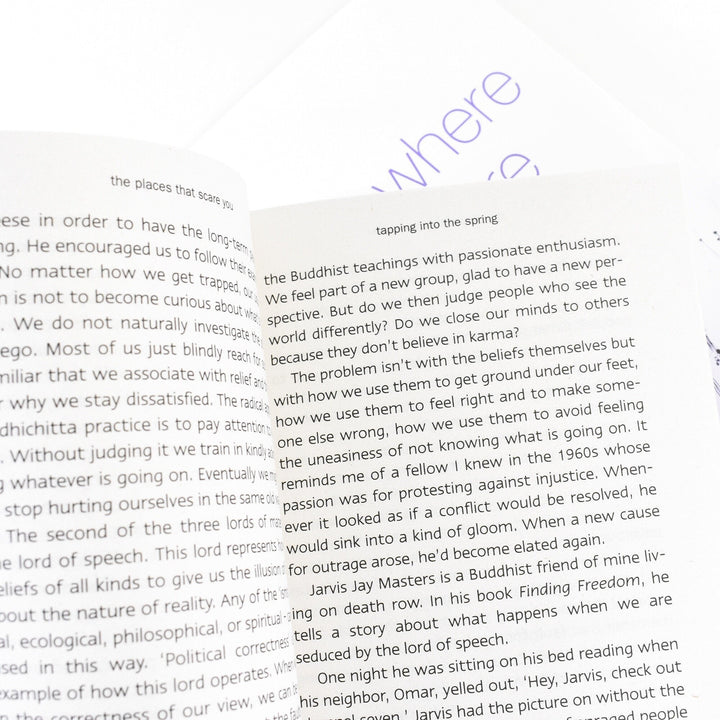 where
the places that scare you
ese in order to have the long-term
ng. He encouraged us to follow their
No matter how we get trapped, our
n is not to become curious about what
. We do not naturally investigate the
ego. Most of us just blindly reach for
miliar that we associate with relief and
r why we stay dissatisfied. The radical
dhichitta practice is to pay attention
. Without judging it we train in kindly
g whatever is going on. Eventually we
stop hurting ourselves in the same old
The second of the three lords of
e lord of speech. This lord represents
eliefs of all kinds to give us the illusion
bout the nature of reality. Any of the
al, ecological, philosophical, or spiritual-
sed in this way. 'Political correctness
example of how this lord operates. When
n the correctness of our view, we can
tapping into the spring
the Buddhist teachings with passionate enthusiasm.
We feel part of a new group, glad to have a new per-
spective. But do we then judge people who see the
world differently? Do we close our minds to others
because they don't believe in karma?
The problem isn't with the beliefs themselves but
with how we use them to get ground under our feet,
how we use them to feel right and to make some-
one else wrong, how we use them to avoid feeling
the uneasiness of not knowing what is going on. It
reminds me of a fellow I knew in the 1960s whose
passion was for protesting against injustice. When-
ever it looked as if a conflict would be resolved, he
would sink into a kind of gloom. When a new cause
for outrage arose, he'd become elated again.
Jarvis Jay Masters is a Buddhist friend of mine liv-
ing on death row. In his book Finding Freedom, he
tells a story about what happens when we are
seduced by the lord of speech.
One night he was sitting on his bed reading when
his neighbor, Omar, yelled out, 'Hey, Jarvis, check out
seven.' Jarvis had the picture on without the
people